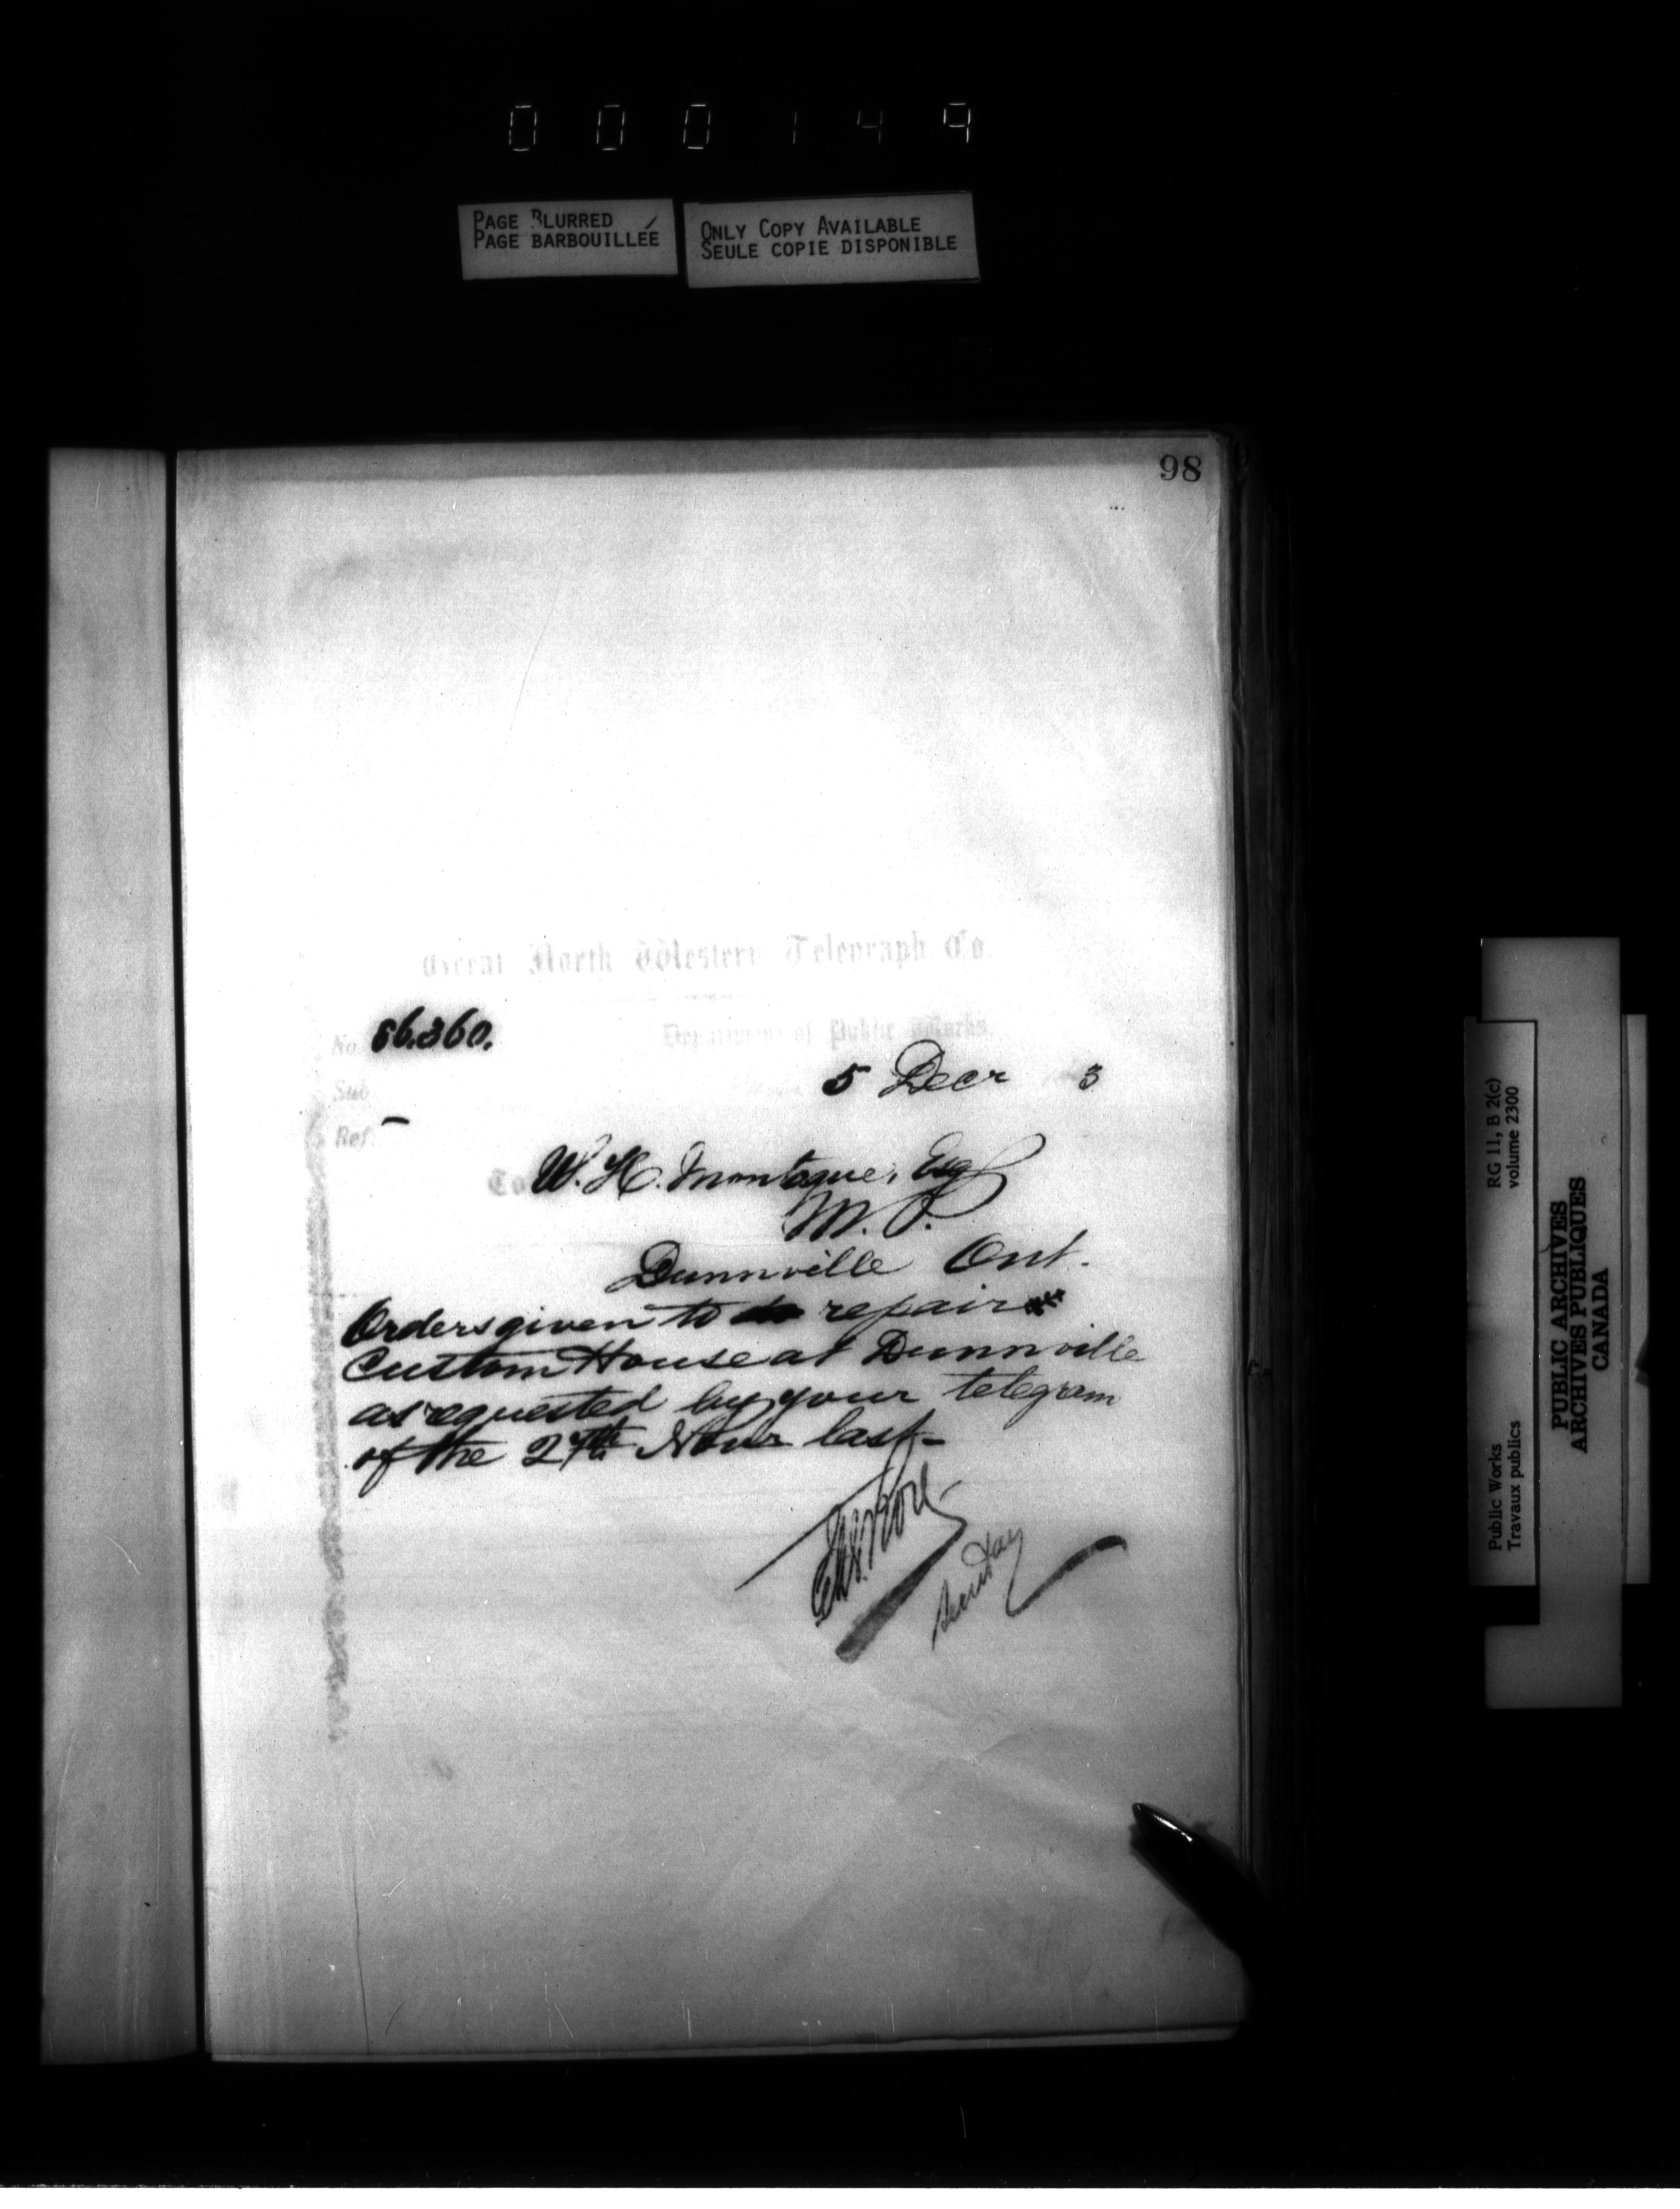 000149
PAGE BLURRED
PAGE BARBOUILLÉE
ONLY COPY AVAILABLE
SEULE COPIE DISPONIBLE
98
Great North Western Telegraph Co.
Department of Public Works.
No. 56.360.
5 Decr 3
Sub
Ref. –
To W. H. Montague, Esq
M. P.
Dunnville Ont.
Orders given to repair
Custom House at Dunnville
as requested by your telegram
of the 27th Novr last -
Secretary
RG 11, B 2(c)
volume 2300
Public Works
Travaux publics
PUBLIC ARCHIVES
ARCHIVES PUBLIQUES
CANADA